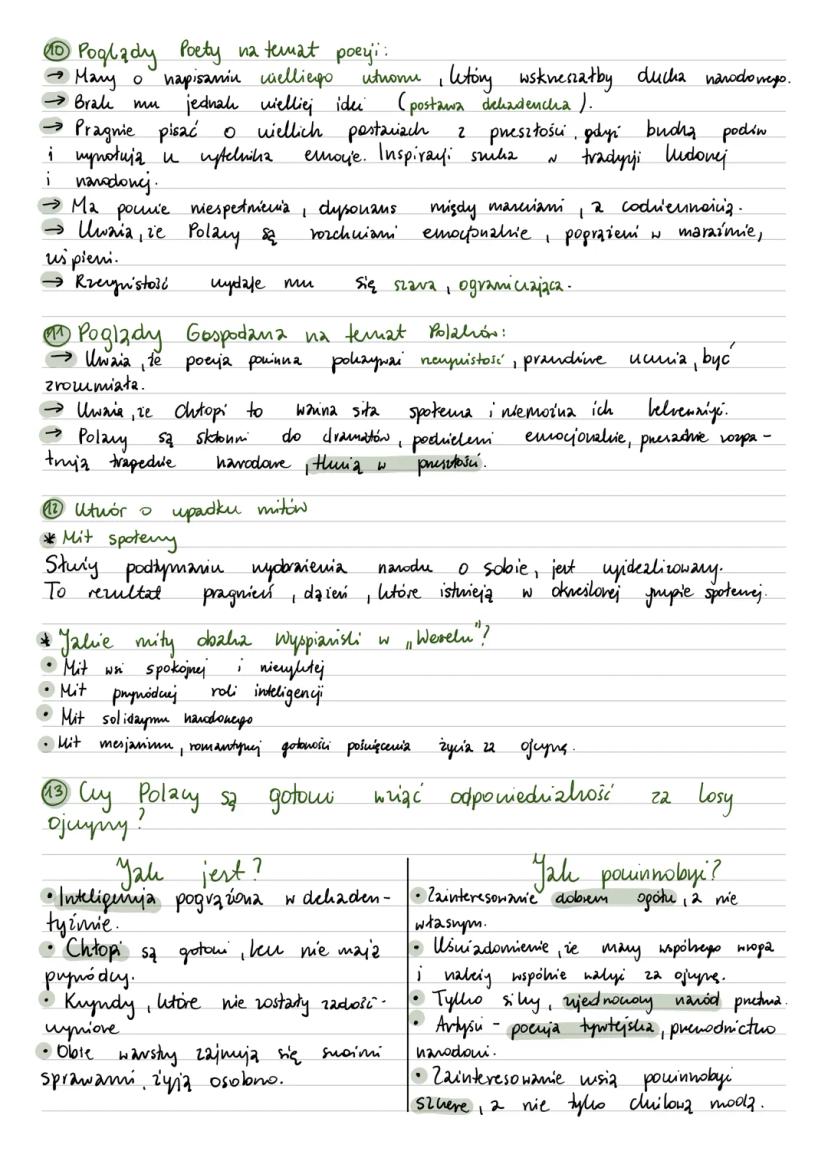 10 Poglądy Poety na temat poezji:
→ Marzy o napisaniu wielkiego utworu, który wskrzeszałby ducha narodowego.
→ Brak mu jednak wielkiej idei (postawa dekadencka).
→ Pragnie pisać o wielkich postaciach z przeszłości, gdyż budzą podziw
i wywołują u czytelnika emocje. Inspiracji szuka w tradycji ludowej
i narodowej.
→ Ma poczucie niespełnienia, dysonans między marzeniami, a codziennością.
→ Uważa, że Polacy są rozchwiani emocjonalnie, pogrążeni w marazmie,
uśpieni.
→ Rzeczywistość wydaje mu się szara, ograniczająca.
11 Poglądy Gospodarza na temat Polaków:
→ Uważa, że poezja powinna pokazywać rzeczywistość, prawdziwe uczucia, być
zrozumiała.
→ Uważa, że Chłopi to ważna siła społeczna i niemożna ich lekceważyć.
→ Polacy są skłonni do dramatów, podzieleni emocjonalnie, przesadnie rozpa-
trują tragedie narodowe, tkwią w przeszłości.
12 Utwór o upadku mitów
* Mit społeczny
Służy podtrzymaniu wyobrażenia narodu o sobie, jest wyidealizowany.
To rezultat pragnień, dążeń, które istnieją w określonej grupie społecznej.
* Jakie mity obala Wyspiański w „Weselu"?
• Mit wsi spokojnej i niezwykłej
• Mit przywódczej roli inteligencji
• Mit solidaryzmu narodowego
• Mit mesjanizmu, romantycznej gotowości poświęcenia życia za ojczyznę.
13 Czy Polacy są gotowi wziąć odpowiedzialność za losy
ojczyzny?
Jak jest?
• Inteligencja pogrążona w dekaden-
tyzmie.
• Chłopi są gotowi, lecz nie mają
przywódcy.
• Krzywdy, które nie zostały zadość-
uczynione
• Obie warstwy zajmują się swoimi
sprawami, żyją osobno.
Jak powinnobyć?
• Zainteresowanie dobrem ogółu, a nie
własnym.
• Uświadomienie, że mamy wspólnego wroga
i należy wspólnie walczyć za ojczyznę.
• Tylko silny, zjednoczony naród przetrwa.
• Artyści - poezja tyrtejska, przewodnictwo
narodowi.
• Zainteresowanie wsią powinnobyć
szczere, a nie tylko chwilową modą.